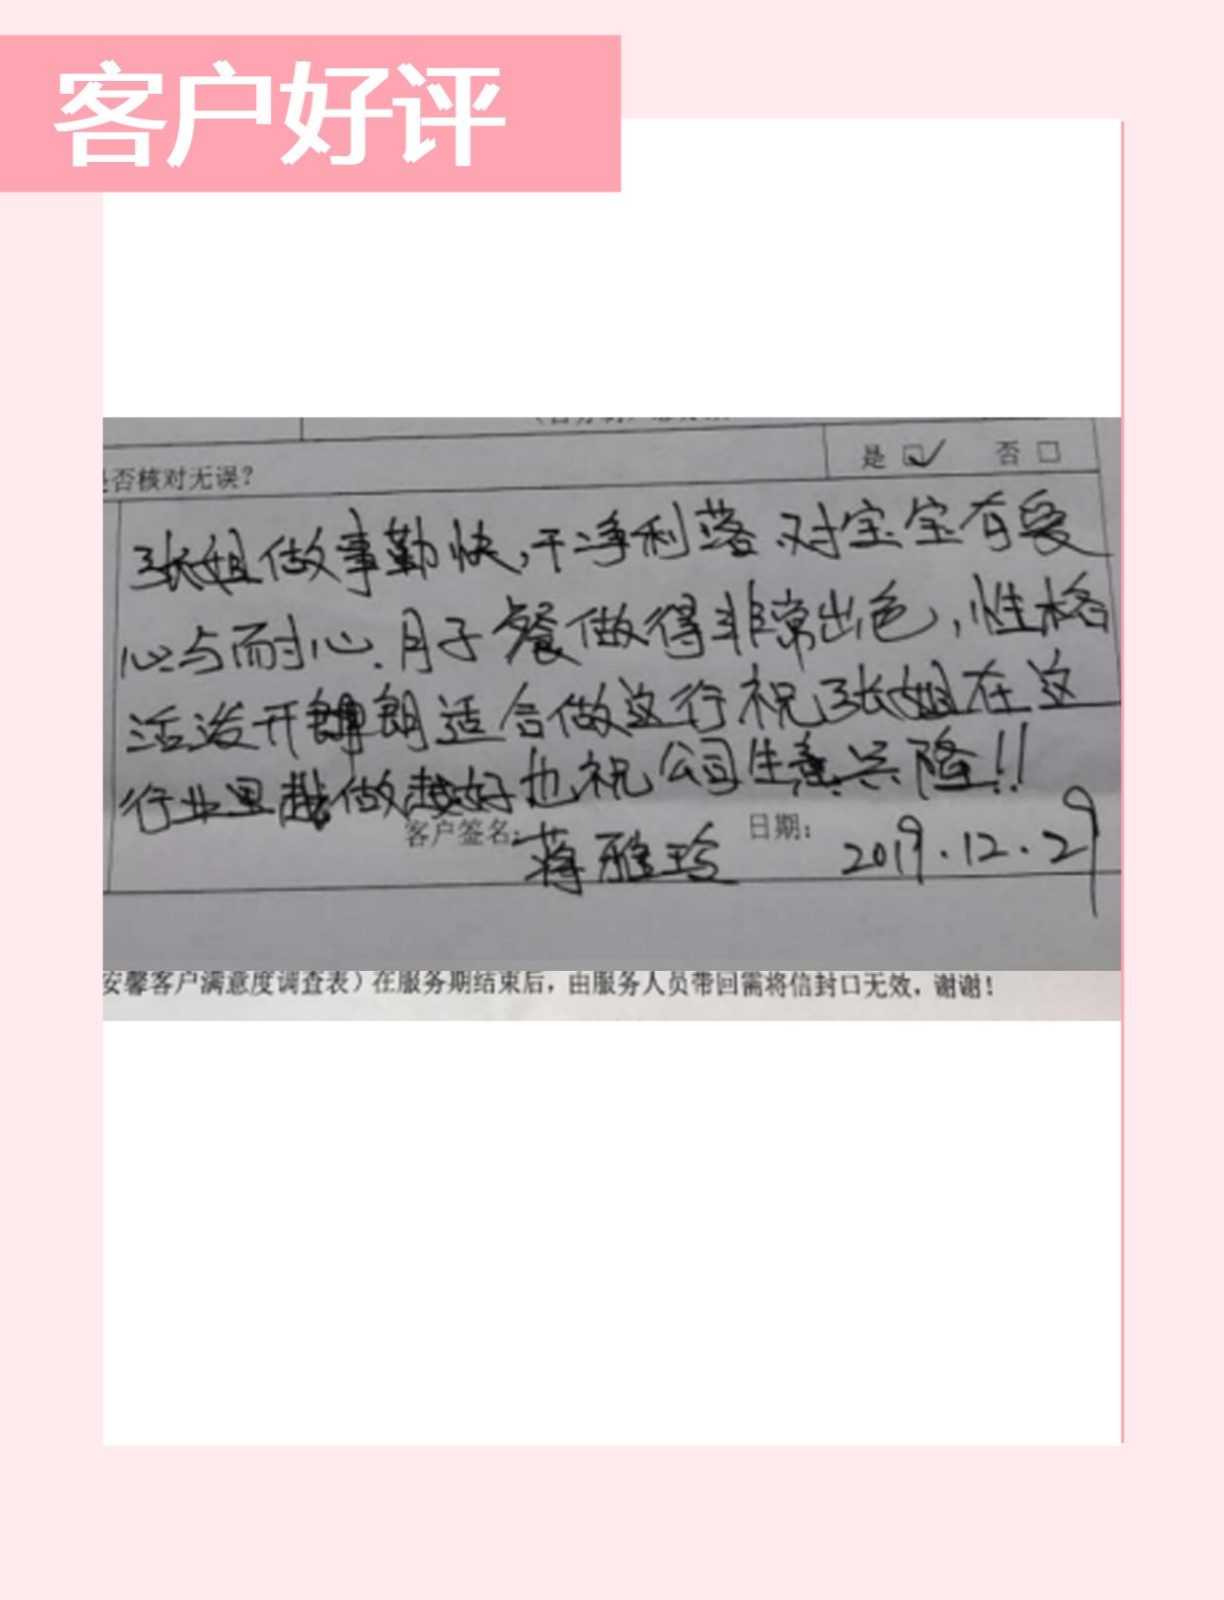 客户好评
是否核对无误？
是 否
张姐做事勤快，干净利落、对宝宝有爱
心与耐心。月子餐做得非常出色，性格
活泼开朗适合做这行祝张姐在这
行业里越做越好也祝公司生意兴隆!!
客户签名: 蒋雅玲 日期: 2019.12.29
安馨客户满意度调查表）在服务期结束后，由服务人员带回需将信封口无效，谢谢！